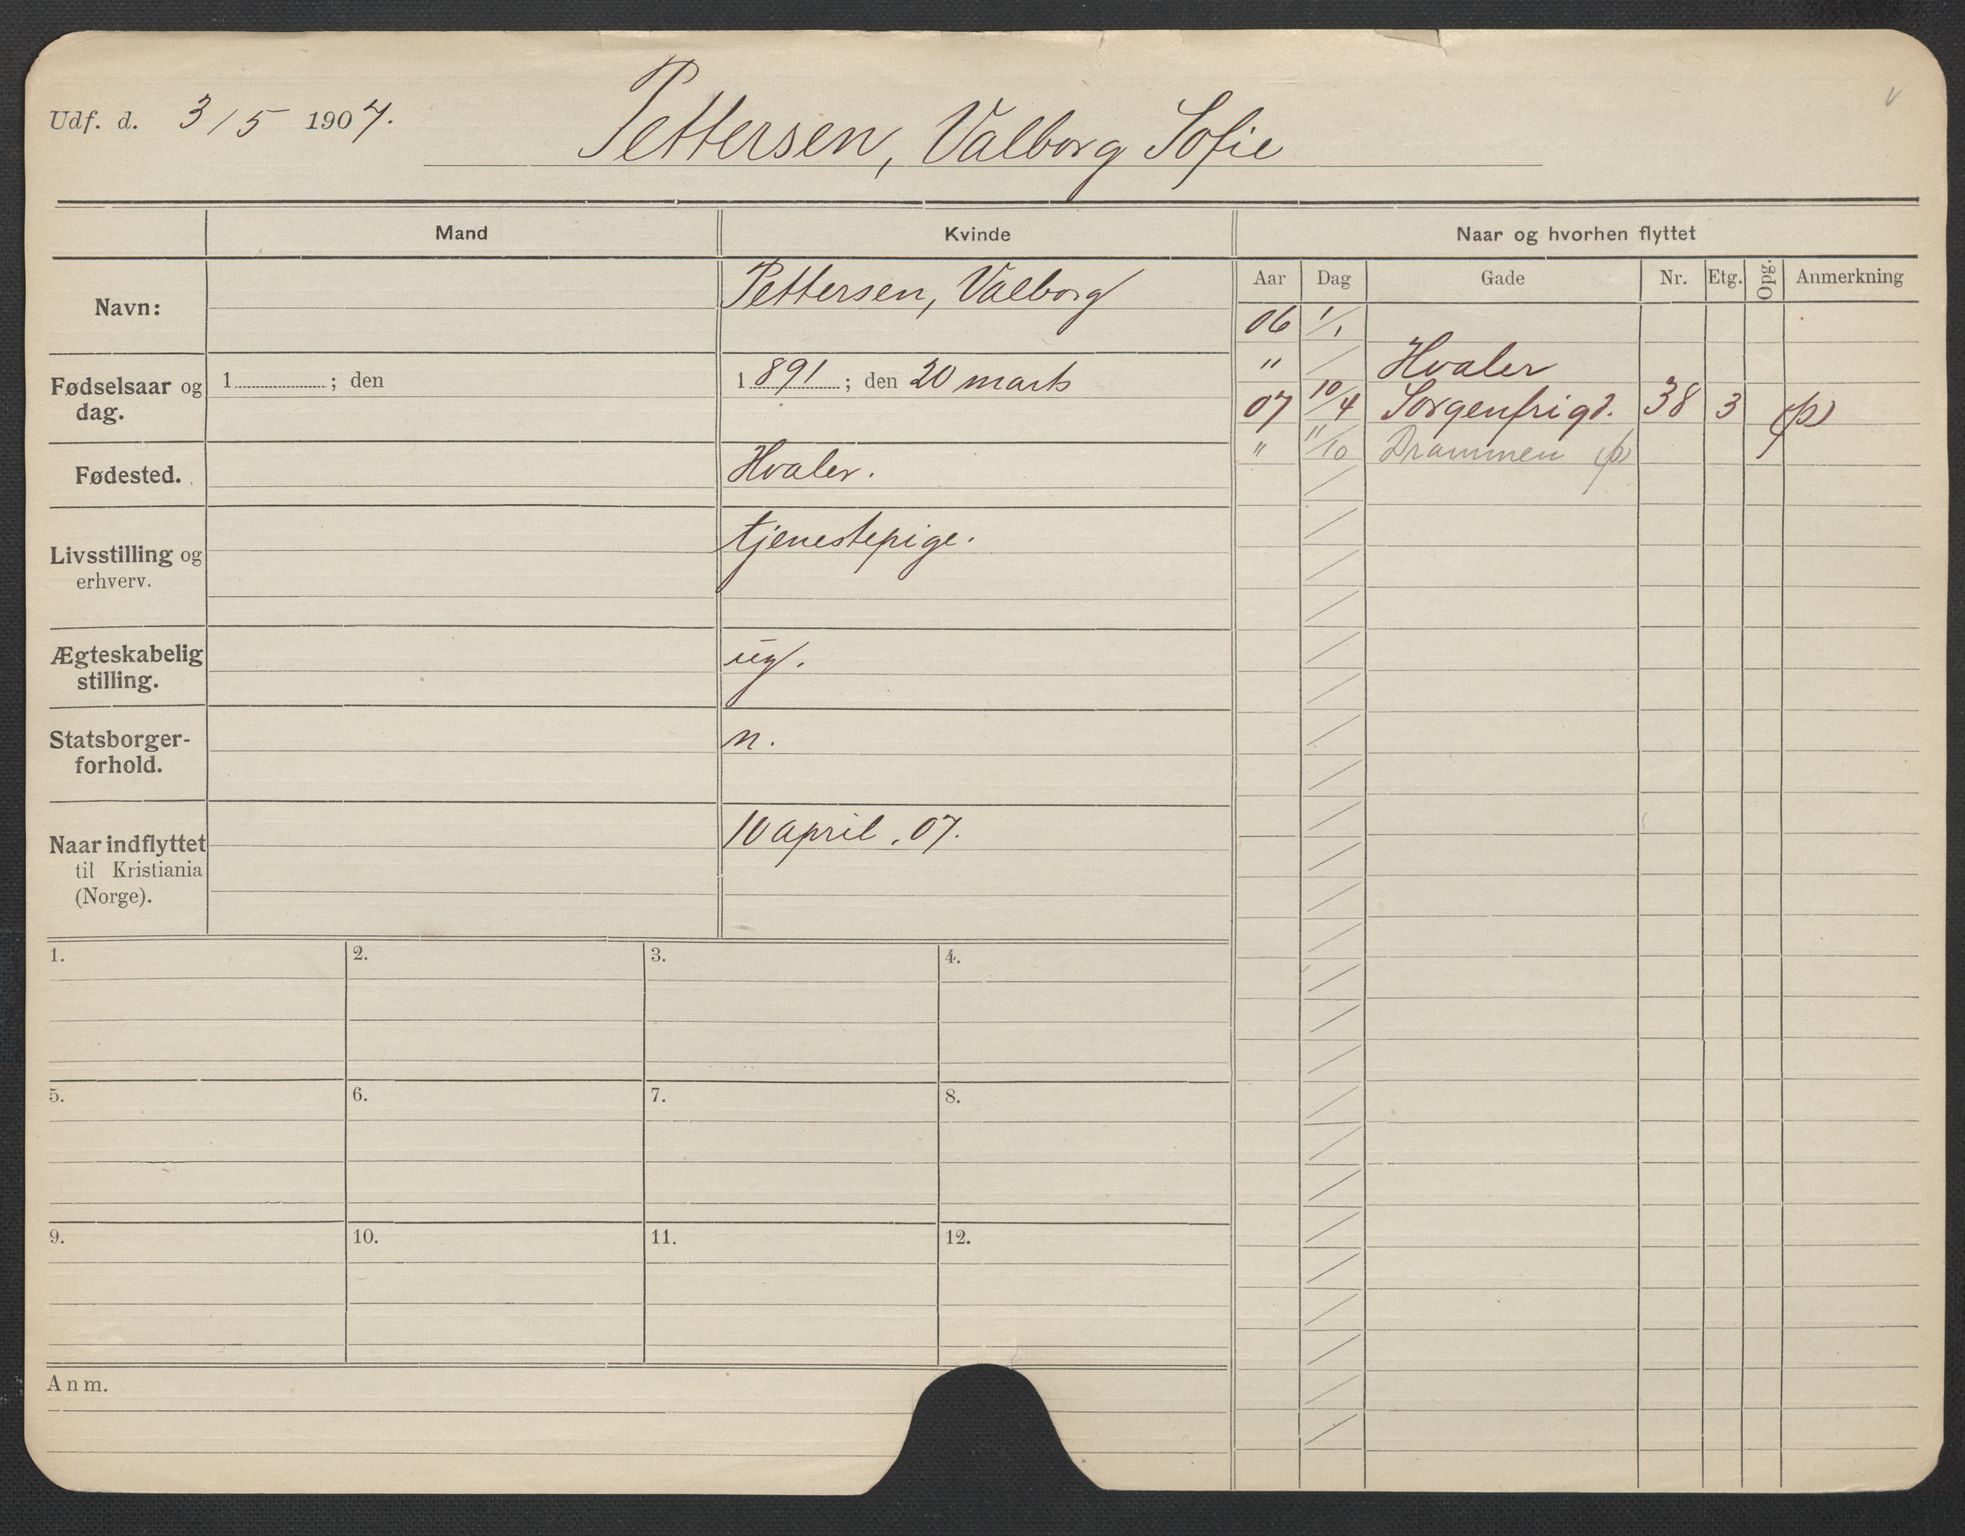 Udf. d. 3/5 1907. Pettersen, Valborg Sofie
Mand Kvinde Naar og hvorhen flyttet
Aar Dag Gade Nr. Etg. Opg. Anmerkning
Navn: Pettersen, Valborg
06 1/1
" / Hvaler
07 10/4 Sorgenfrigd. 38 3 (p)
" 11/10 Drammen (p)
Fødselsaar og
dag.
1 ; den
1891 ; den 20 marts
Fødested. Hvaler.
Livsstilling og
erhverv.
tjenestepige.
Ægteskabelig
stilling.
ug.
Statsborger-
forhold.
n.
Naar indflyttet
til Kristiania
(Norge).
10 april. 07.
1. 2. 3. 4.
5. 6. 7. 8.
9. 10. 11. 12.
Anm.